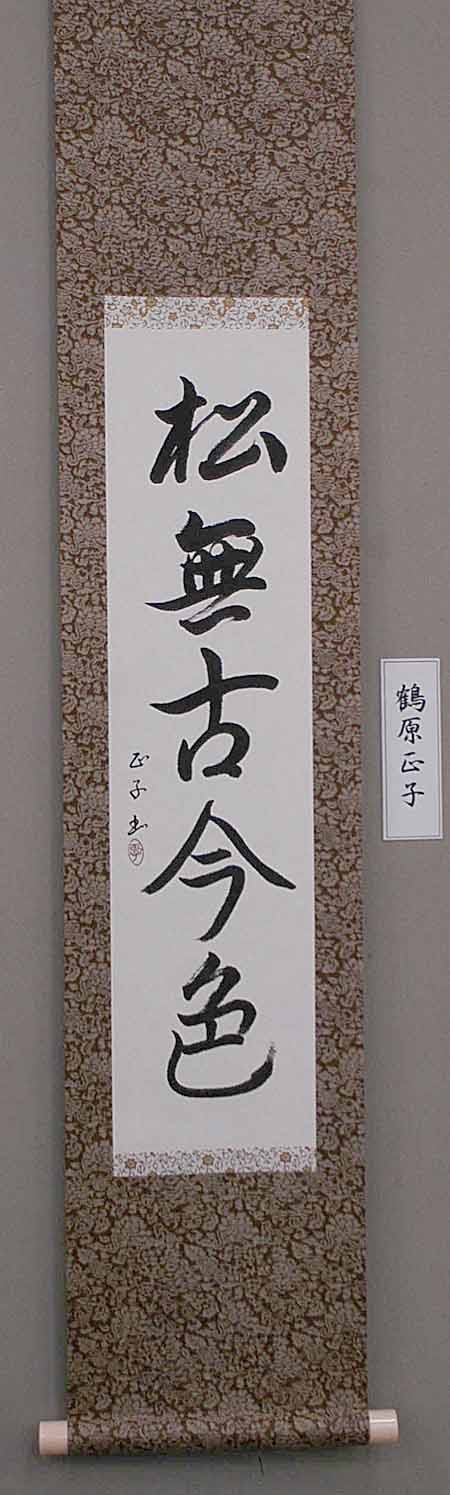 松無古今色
正子書
鶴原正子